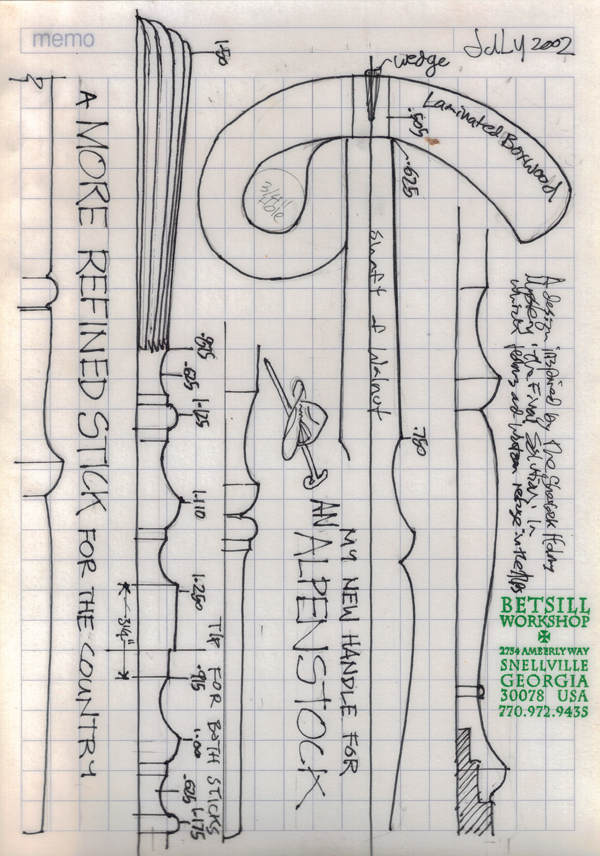 memo
JULY 2002
wedge
Laminated Boxwood
.505
.625
3/4" Hole
shaft of Walnut
.750
A design inspired by the Sherlock Holmes
Mystery "The Final Solution" in
which Holmes and Watson refuge in the Alps
MY NEW HANDLE FOR
AN ALPENSTOCK
A MORE REFINED STICK FOR THE COUNTRY
1.50
.875
.625
1.125
1.110
1.250
3/4"
.975
1.00
.625
1.175
TIP FOR BOTH STICKS
BETSILL
WORKSHOP
2754 AMBERLY WAY
SNELLVILLE
GEORGIA
30078 USA
770.972.9435